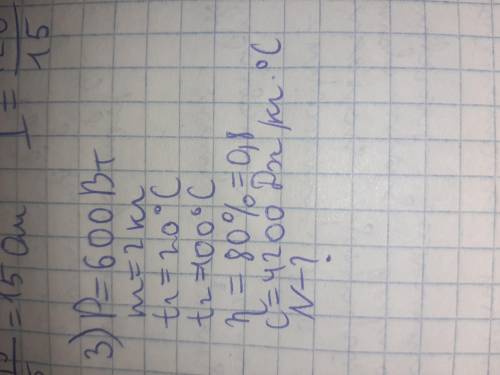 = 15 Ом
I = 
15
3) P = 600 Вт
m = 2 кг
t₁ = 20°C
t₂ = 100°C
η = 80% = 0,8
C = 4200 Дж/кг·°C
N - ?